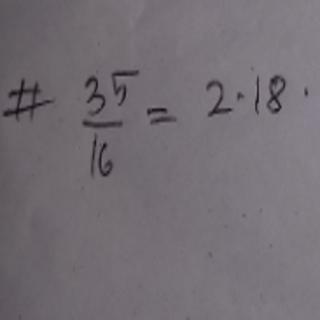 # 35/16 = 2.18.